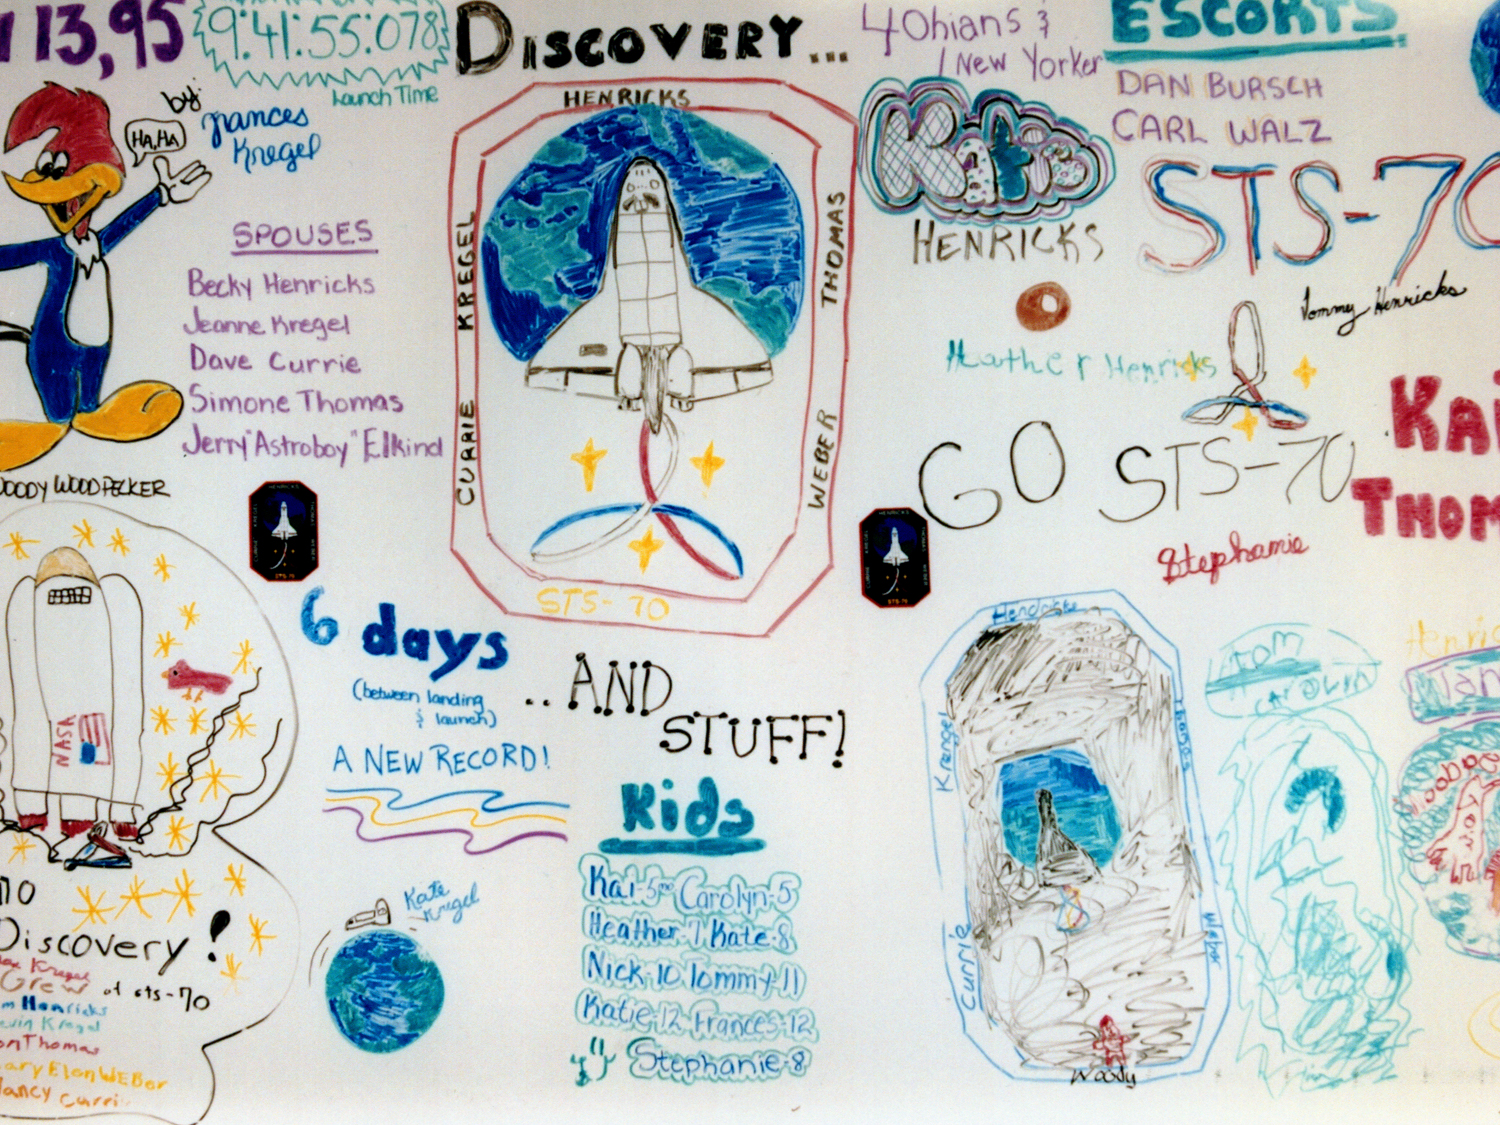 13,95
9:41:55:078
Launch Time
by:
Frances
Kregel
HA, HA
WOODY WOODPECKER
SPOUSES
Becky Henricks
Jeanne Kregel
Dave Currie
Simone Thomas
Jerry "Astroboy" Elkind
DISCOVERY...
HENRICKS
KREGEL
THOMAS
CURRIE
WEBER
STS-70
4 Ohians &
1 New Yorker
Katie
HENRICKS
ESCORTS
DAN BURSCH
CARL WALZ
STS-70
Tommy Henricks
Heather Henricks
GO STS-70
Stephanie
KAI
THOM
NASA
Discovery!
Kregel
Crew of sts-70
Henricks
Kregel
Thomas
Mary Elen WEBer
Nancy Curri
6 days
(between landing
& launch)
A NEW RECORD!
Kate
Kregel
..AND
STUFF!
Kids
Kai-5 Carolyn-5
Heather-7 Kate-8
Nick-10 Tommy-11
Katie-12 Frances-12
Stephanie-8
Hendricks
Krengel
Currie
Weber
Woody
Tom
CAROLYN
Henric